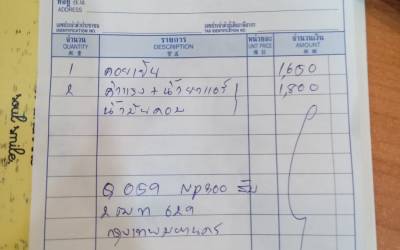 ที่อยู่
ADDRESS
เลขประจำตัวประชาชน
TAX IDENTIFICATION NO.
เลขประจำตัวผู้เสียภาษีอากร
TAX IDENTIFICATION NO.
จำนวน รายการ หน่วยละ จำนวนเงิน
QUANTITY DESCRIPTION UNIT PRICE AMOUNT
1 คอยเย็น 1,650
2 ค่าแรง + น้ำยาแอร์ 1,800
น้ำมันคอม
NP300
2ฒท 629
กรุงเทพมหานคร
soul smile